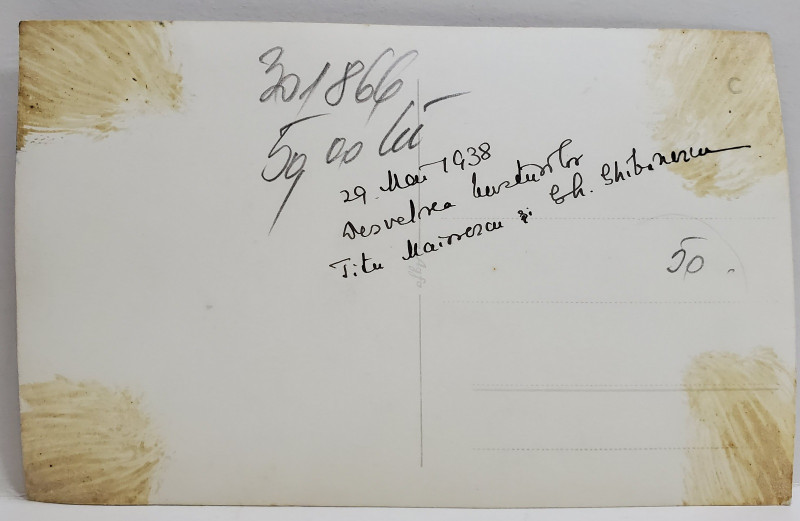 301866
50,00 lei
29 Mai 1938
Desvelirea busturilor
Titu Maiorescu și Gh. Ghibănescu
50.
C
Agfa